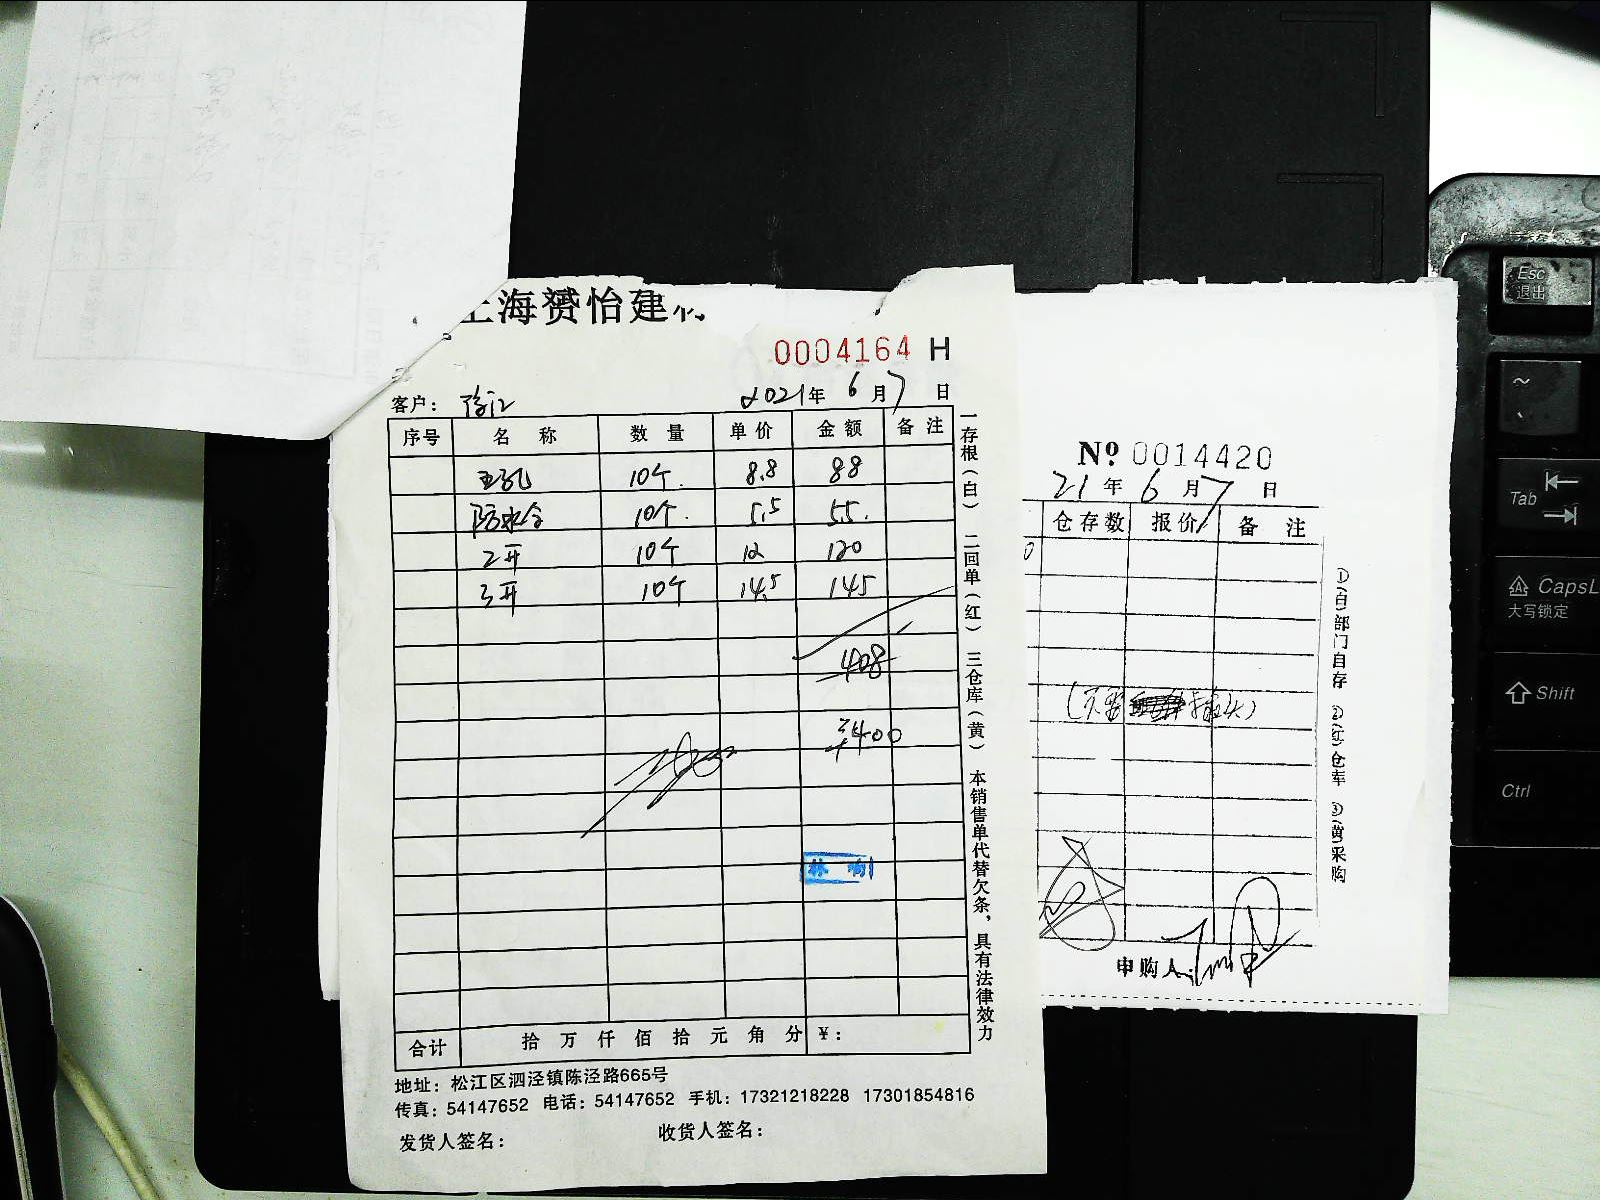 上海赟怡建
0004164 H
客户： 2021年 6月7日
序号 名称 数量 单价 金额 备注
五孔 10个. 8.8 88
防水合 10个. 5.5 55.
2开 10个 12 120
3开 10个 14.5 145
408
￥400
合计 拾万仟佰拾元角分 ￥：
地址：松江区泗泾镇陈泾路665号
传真：54147652 电话：54147652 手机：17321218228 17301854816
发货人签名： 收货人签名：
一存根（白） 二回单（红） 三仓库（黄） 本销售单代替欠条，具有法律效力
Nº 0014420
21年6月7日
仓存数 报价 备注
申购人：
①(白)部门自存 ②(红)仓库 ③(黄)采购
Esc
退出
~
Tab
CapsL
大写锁定
Shift
Ctrl